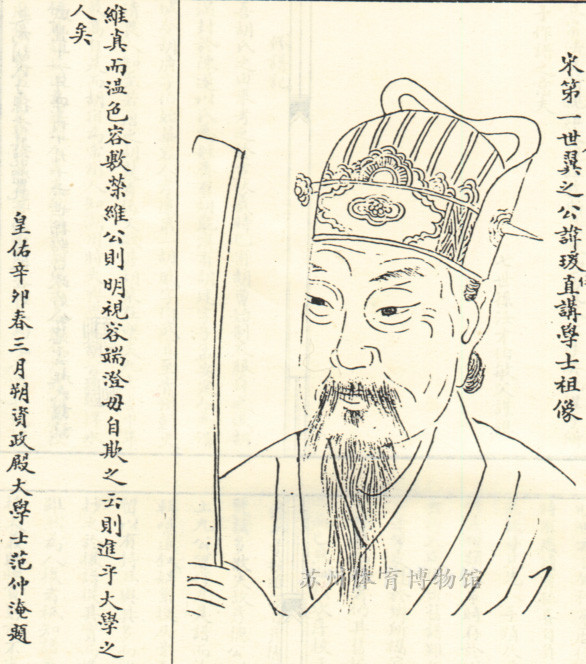 宋第一世翼之公諱瑗直講學士祖像
維真而溫色容敷榮維公則明視容端澄毋自欺之云則進乎大學之
人矣
皇佑辛卯春三月朔資政殿大學士范仲淹題
苏州体育博物馆